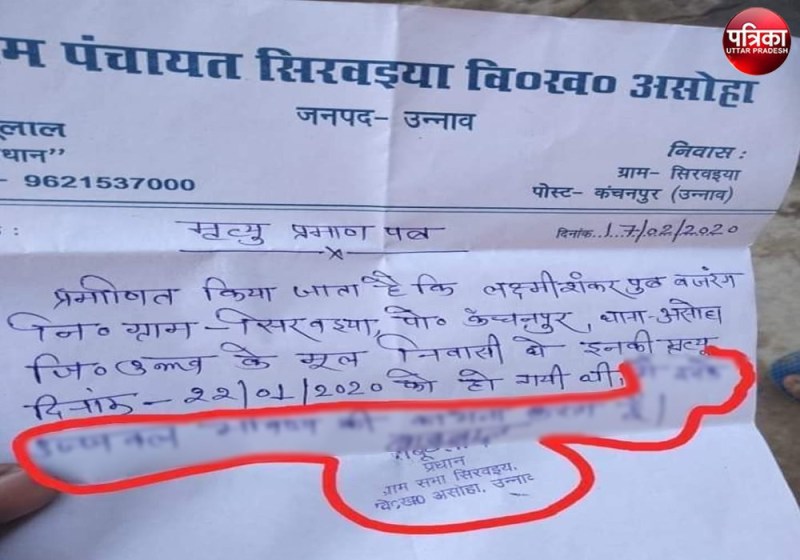 पत्रिका
UTTAR PRADESH
म पंचायत सिरवइया वि०ख० असोहा
जनपद- उन्नाव
लाल
धान”
- 9621537000
निवास :
ग्राम- सिरवइया
पोस्ट- कंचनपुर (उन्नाव)
मृत्यु प्रमाण पत्र
दिनांक 17/02/2020
प्रमाणित किया जाता है कि लक्ष्मीशंकर पुत्र बजरंग
नि० ग्राम-सिरवइया, पो० कंचनपुर, थाना-असोहा
जि० उन्नाव के मूल निवासी थे इनकी मृत्यु
दिनांक- 22/01/2020 को हो गयी थी।
प्रधान
ग्राम सभा सिरवइया,
वि०ख० असोहा, उन्नाव